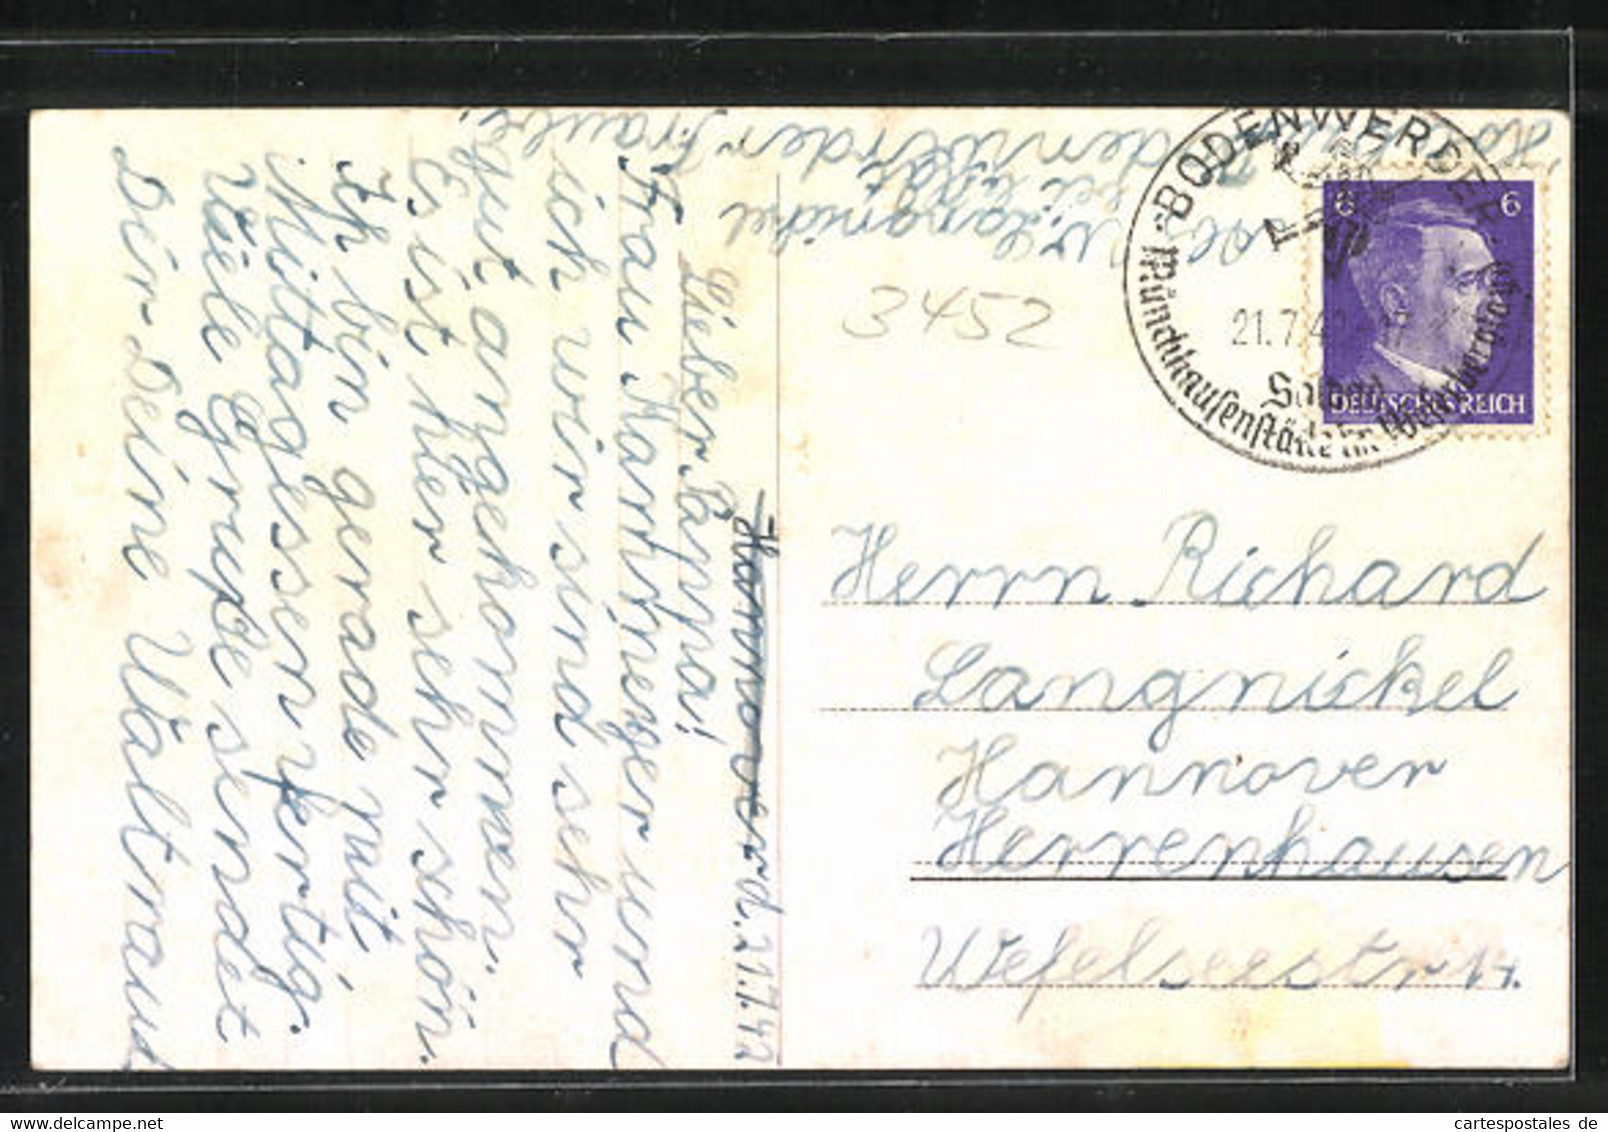 Hannover d. 21.7.42
Lieber Pappa!
Frau Kammeyer und
ich wir sind sehr
gut angekommen.
Es ist hier sehr schön
Ich bin gerade mit
Mittagessen fertig.
Viele Grüße sendet
Dir Deine Waltraud
W. Langnickel
bei
Bodenwerder
Traube
3452
BODENWERDER
21.7.42
Solbad
Münchhausenstadt im Weserbergland
6 6
DEUTSCHES REICH
Herrn Richard
Langnickel
Hannover
Herrenhausen
Wefelseestr 14.
cartespostales de